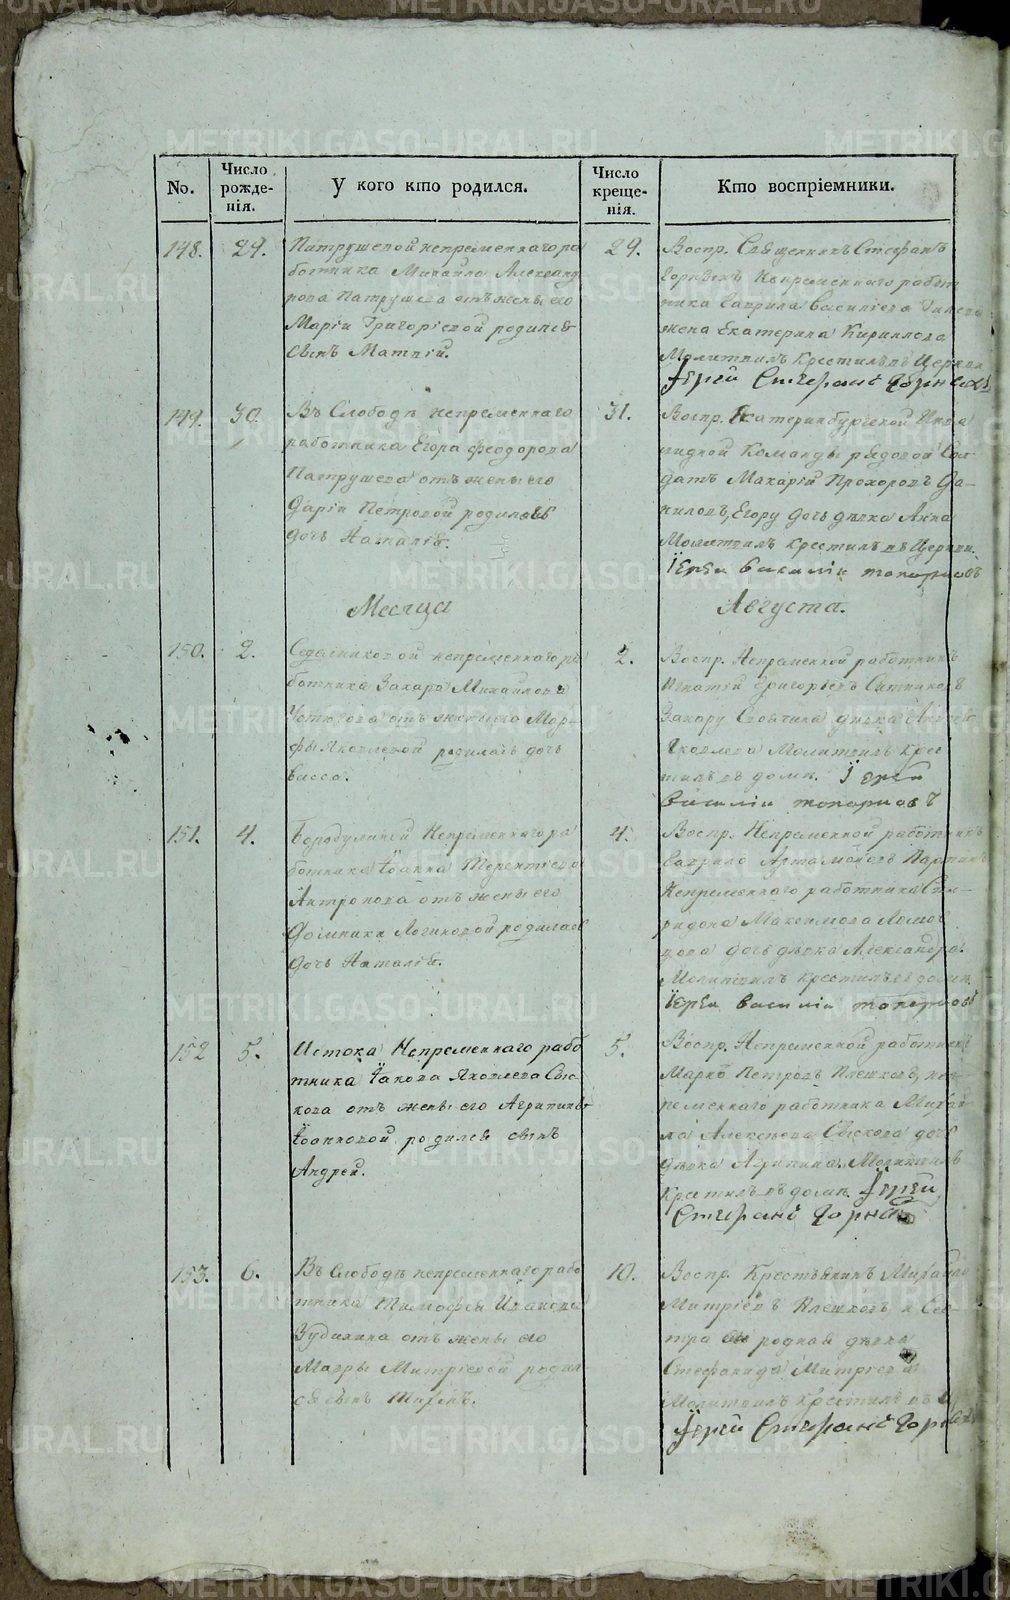 No.
Число рожде-нія.
У кого кто родился.
Число креще-нія.
Кто воспріемники.
148. 29.
Патрушевой непременнаго ра
ботника Михаила Александ
рова Патрушева отъ жены его
Маріи Григоріевой родился
сынъ Матвій.
29.
Воспр. Священникъ Стефанъ
Горныхъ непременнаго работ
ника Гаврила Василіева
жена Екатерина Кирилова
Молитвилъ крестилъ въ Церкви
Іерей Стефанъ Горныхъ
149. 30.
Въ Слободѣ непременнаго
работника Егора Феодорова
Патрушева отъ жены его
Даріи Петровой родилась
дочь Наталія.
31.
Воспр. Екатеринбургской Инва
лидной Команды рядовой Сол-
датъ Макарій Прохоровъ Да-
ниловъ, Егору дочь дѣвка Анна
Молитвилъ крестилъ въ Церкви.
Іерей Василій Топорковъ
Месяца Августа.
150. 2.
непременнаго ра
ботника Захара Михайлова
Устюгова отъ жены его Мар-
фы Яковлевой родилась дочь
Васса.
2.
Воспр. Непременной работникъ
Игнатій Григорьевъ Ситниковъ
Захару дѣвка
Яковлева Молитвилъ крес
тилъ въ доме. Іерей
Василій Топорковъ
151. 4.
Бородулиной Непременнаго ра
ботника Іоанна Терентіева
Антропова отъ жены его
Домники Логиновой родилась
дочь Наталія.
4.
Воспр. Непременной работникъ
Гаврило Артамоновъ
Непременнаго работника Спи-
ридона Максимова
дочь дѣвка Александра.
Молитвилъ крестилъ въ доме
Іерей Василій Топорковъ
152 5.
Истока Непременнаго рабо
тника Іакова Яковлева Сыс-
кова отъ жены его Агрипины
Іоанновой родился сынъ
Андрей.
5.
Воспр. Непременной работникъ
Марко Петровъ Плешковъ, неп-
ременнаго работника Михай-
ла Алексѣева Сыскова дочь
дѣвка Агрипина. Молитвилъ
крестилъ въ доме. Іерей
Стефанъ Горныхъ
153. 6.
Въ Слободѣ непременнаго рабо
тника Тимофея Иванова
Зудихина отъ жены его
Мавры Митріевой родил-
ся сынъ
10.
Воспр. Крестьянинъ Михайло
Митріевъ Плешковъ, и Сес-
тра ево родная дѣвка
Стефанида Митріева
Молитвилъ крестилъ въ
Іерей Стефанъ Горныхъ
METRIKI.GASO-URAL.RU